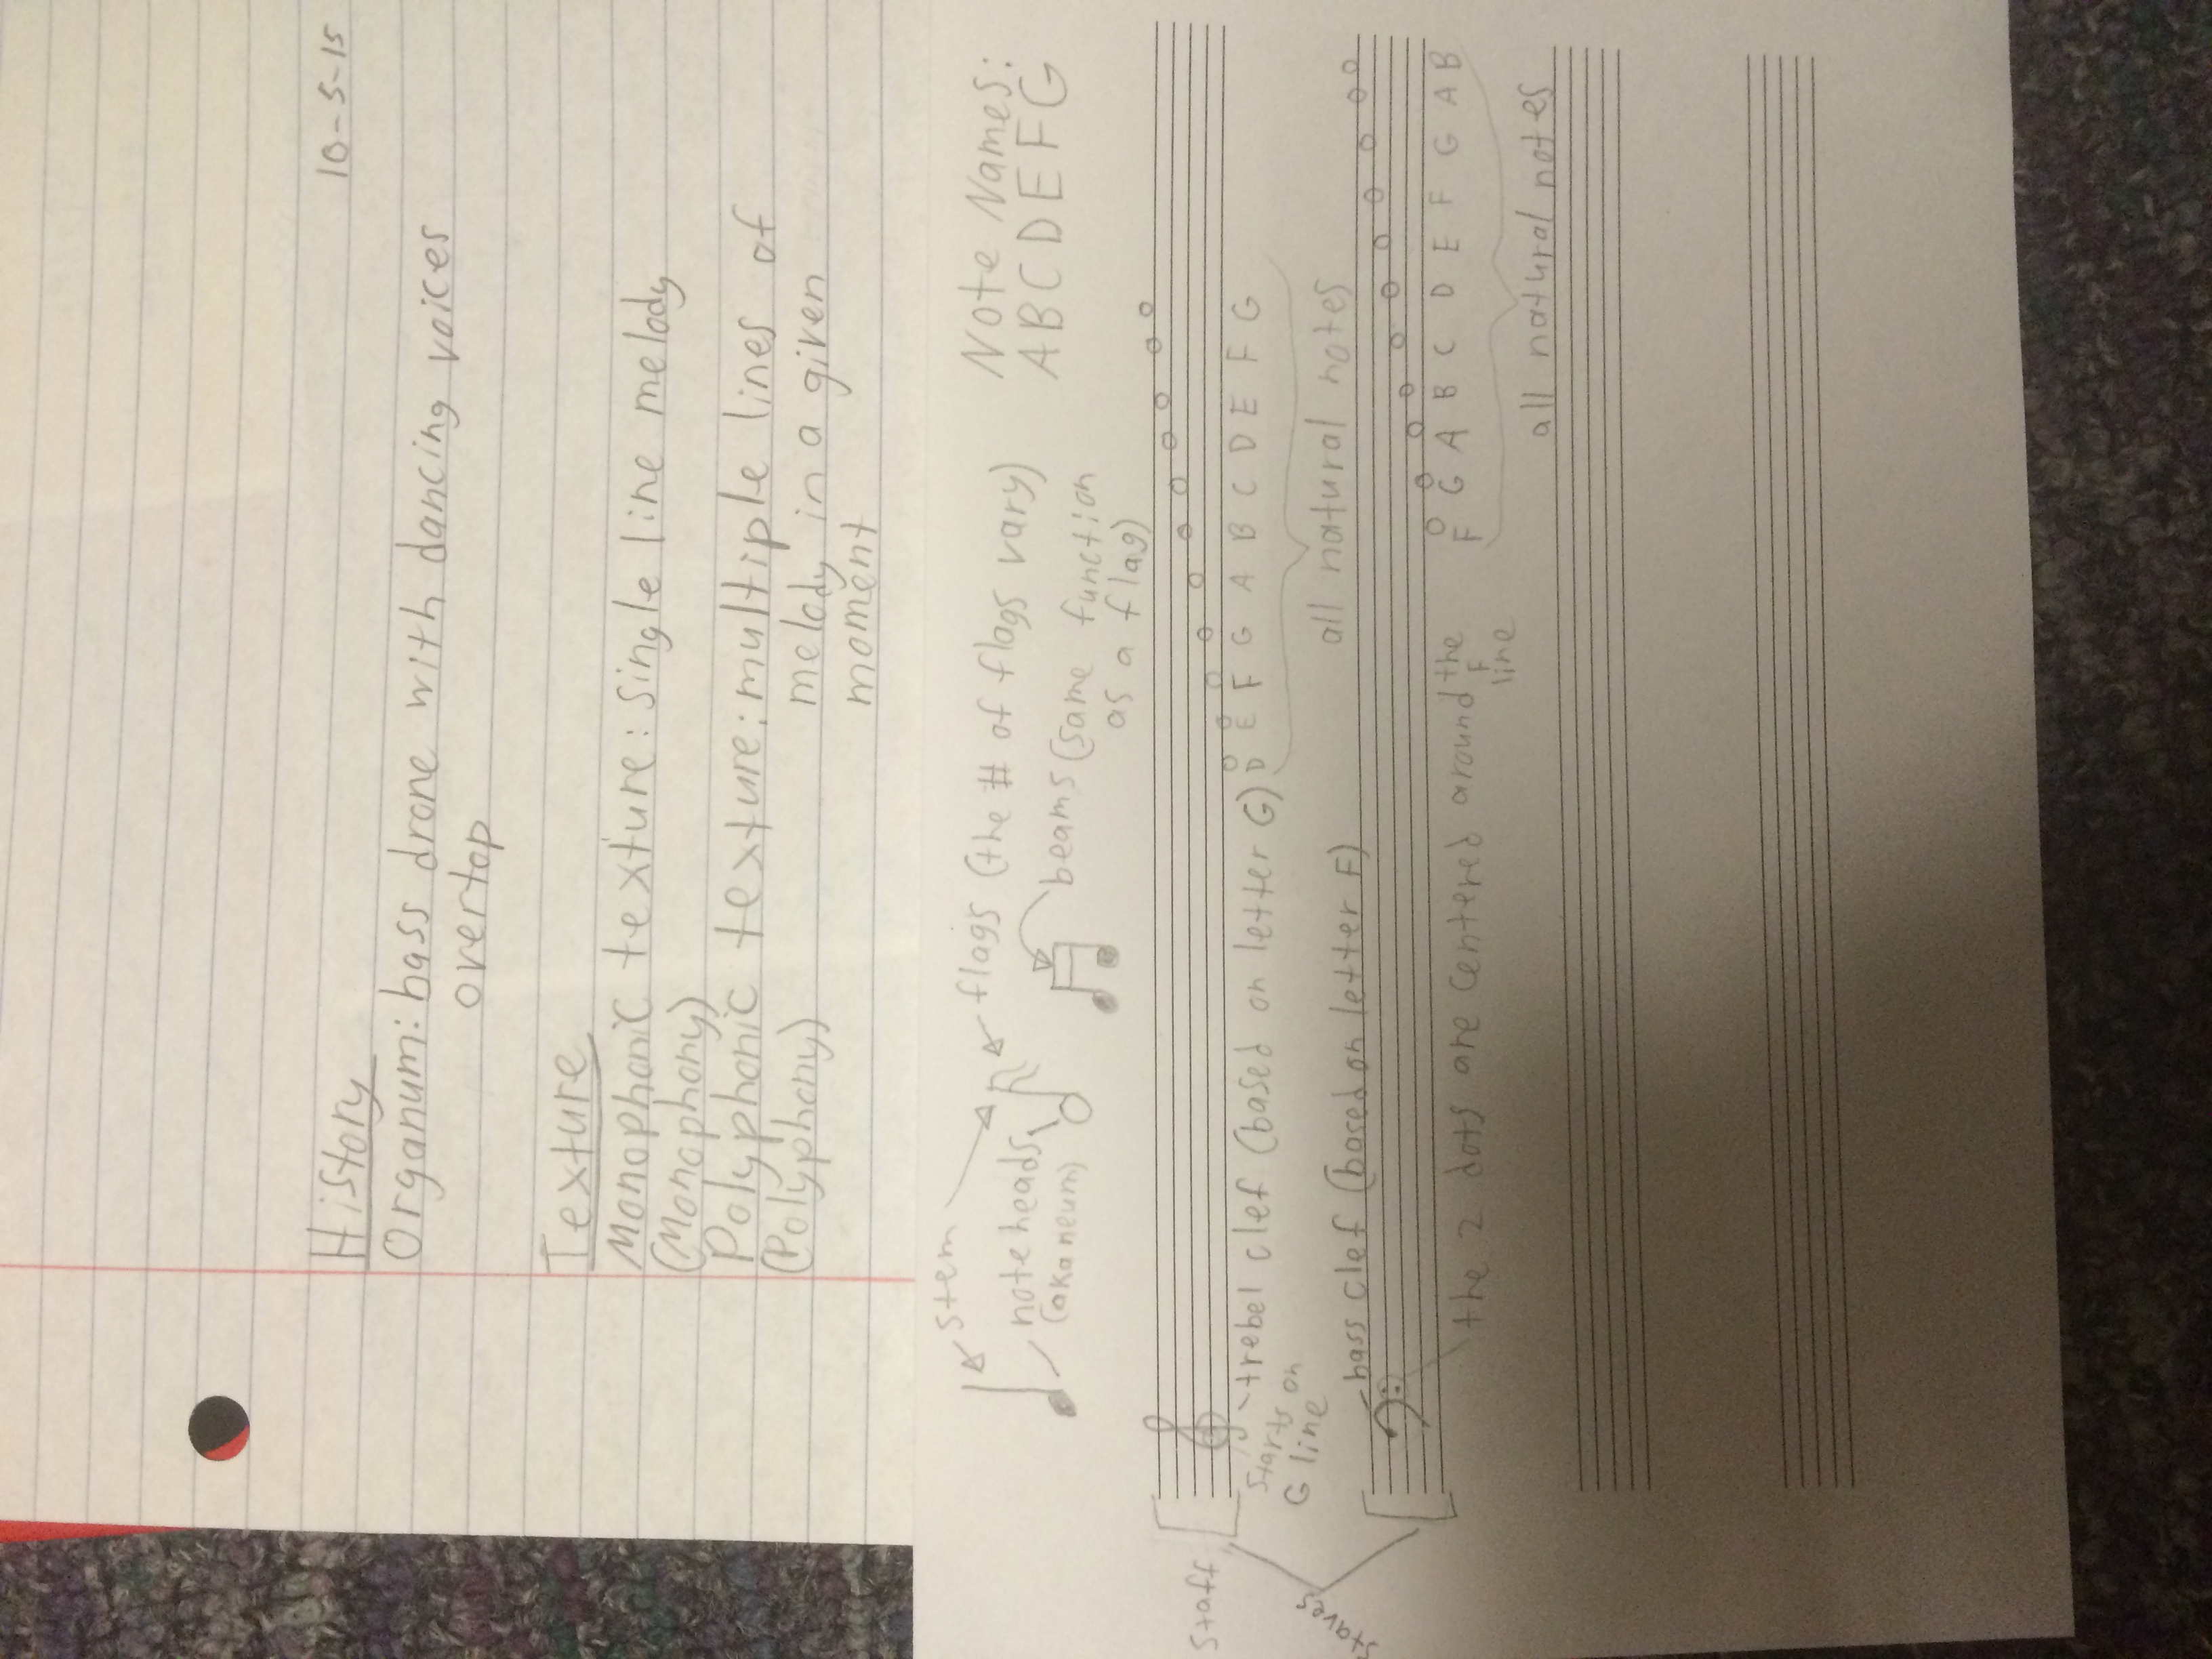 10-5-15
History
Organum: bass drone with dancing voices
overtop
Texture
Monophonic texture: single line melody
(Monophony)
Polyphonic texture: multiple lines of
(Polyphony) melody in a given
moment
stem
flags (the # of flags vary)
Note Names:
A B C D E F G
noteheads
(aka neum)
beams (same function
as a flag)
staff
trebel clef (based on letter G)
D E F G A B C D E F G
starts on
G line
all natural notes
staves
bass clef (based on letter F)
F G A B C D E F G A B
the 2 dots are centered around the
F
line
all natural notes